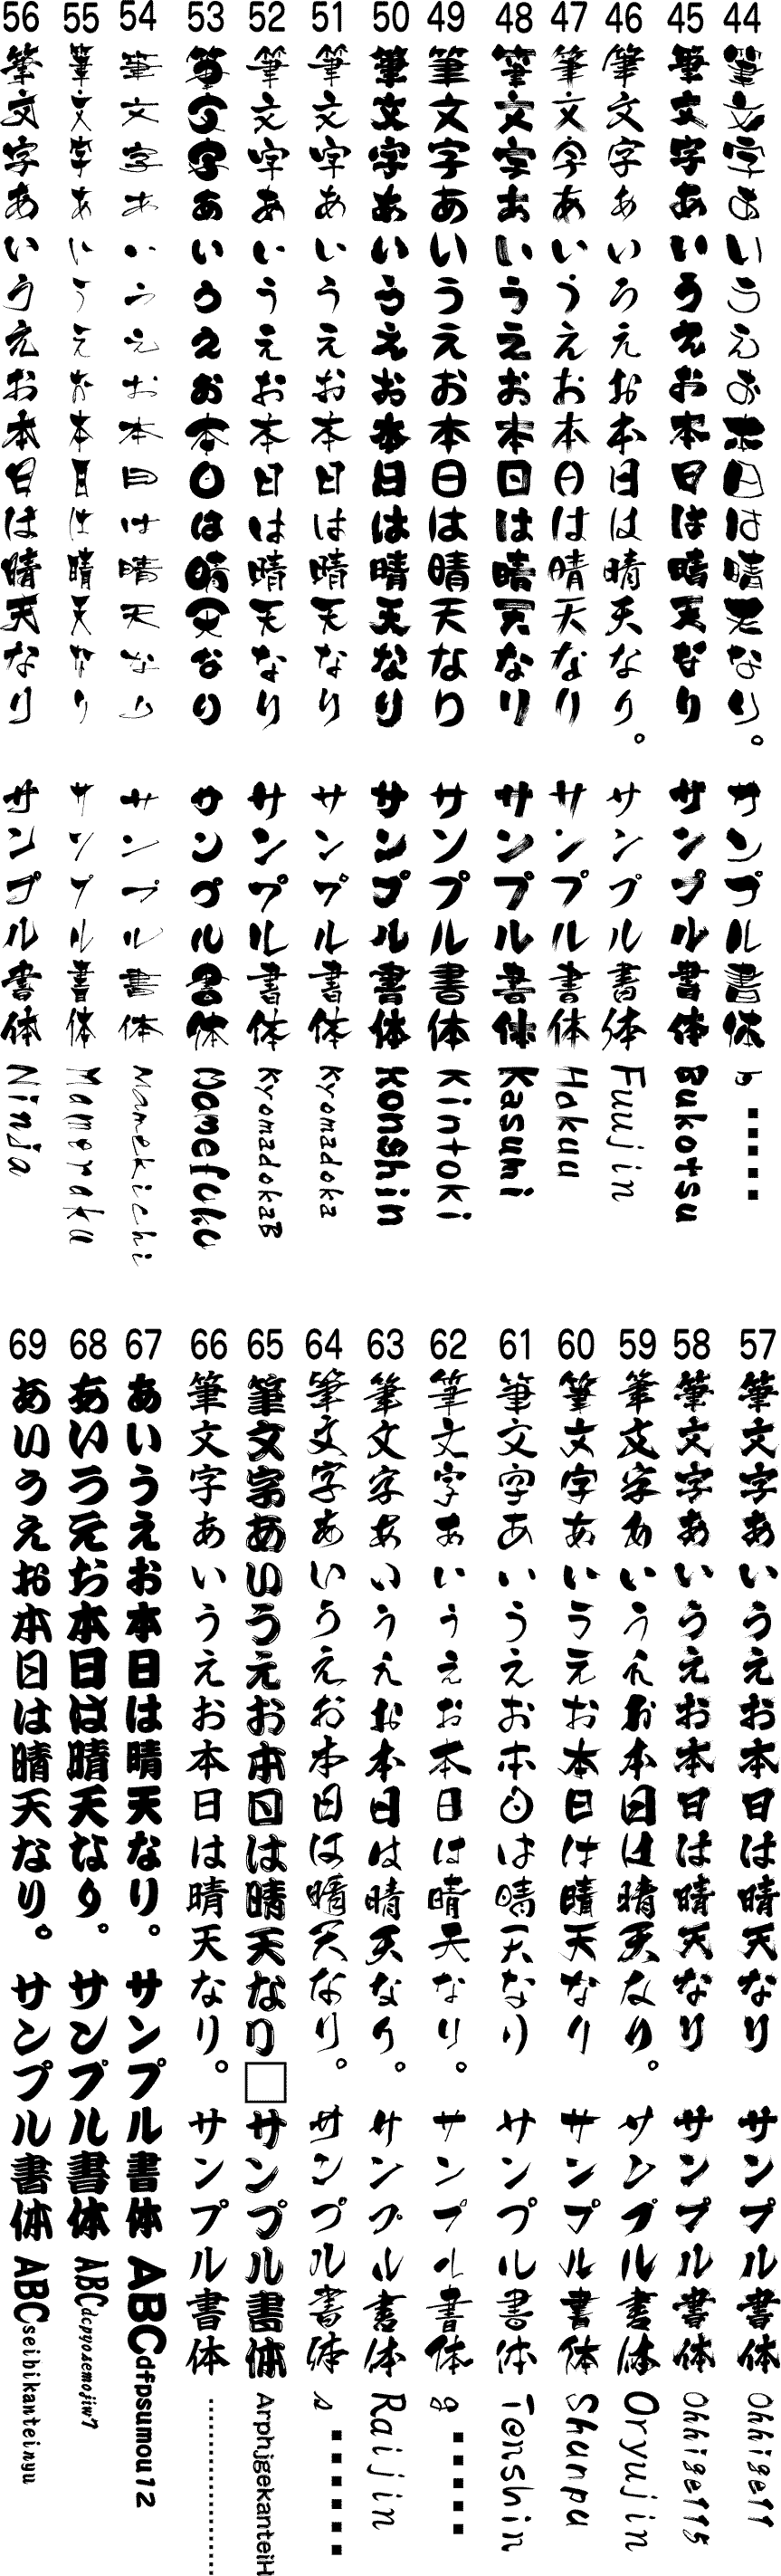 44 筆文字あいうえお本日は晴天なり。 サンプル書体 b
45 筆文字あいうえお本日は晴天なり サンプル書体 Bukotsu
46 筆文字あいうえお本日は晴天なり。 サンプル書体 Fuujin
47 筆文字あいうえお本日は晴天なり サンプル書体 Hakuu
48 筆文字あいうえお本日は晴天なり サンプル書体 Kasumi
49 筆文字あいうえお本日は晴天なり サンプル書体 Kintoki
50 筆文字あいうえお本日は晴天なり サンプル書体 Konshin
51 筆文字あいうえお本日は晴天なり サンプル書体 Kyomadoka
52 筆文字あいうえお本日は晴天なり サンプル書体 KyomadokaB
53 筆文字あいうえお本日は晴天なり サンプル書体 Mamefuku
54 筆文字あいうえお本日は晴天なり サンプル書体 Mamekichi
55 筆文字あいうえお本日は晴天なり サンプル書体 Mamoraku
56 筆文字あいうえお本日は晴天なり サンプル書体 Ninja
57 筆文字あいうえお本日は晴天なり サンプル書体 Ohhige11
58 筆文字あいうえお本日は晴天なり サンプル書体 Ohhige115
59 筆文字あいうえお本日は晴天なり。 サンプル書体 Oryujin
60 筆文字あいうえお本日は晴天なり サンプル書体 Shunpu
61 筆文字あいうえお本日は晴天なり サンプル書体 Tenshin
62 筆文字あいうえお本日は晴天なり。 サンプル書体
63 筆文字あいうえお本日は晴天なり。 サンプル書体 Raijin
64 筆文字あいうえお本日は晴天なり。 サンプル書体 s
65 筆文字あいうえお本日は晴天なり□サンプル書体 ArphjgekanteiH
66 筆文字あいうえお本日は晴天なり。 サンプル書体
67 あいうえお本日は晴天なり。 サンプル書体 ABCdfpsumou12
68 あいうえお本日は晴天なり。 サンプル書体 ABCdcpyosemojiw7
69 あいうえお本日は晴天なり。 サンプル書体 ABCseibikanteiryu